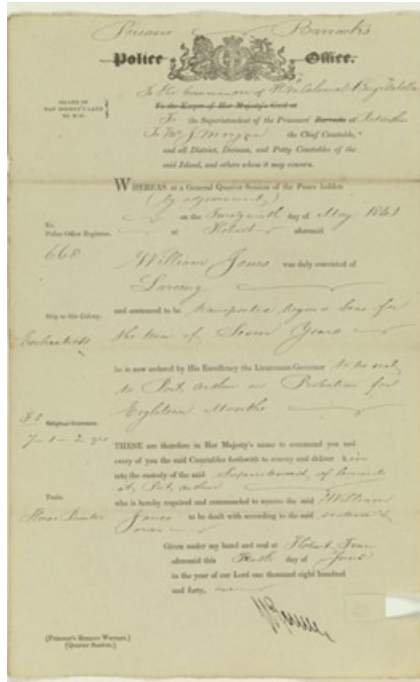 Prisoners Barracks
Police Office.
ISLAND OF
VAN DIEMEN'S LAND
TO WIT.
To the Commander of
To the Keeper of Her Majesty's Gaol at
To the Superintendent of the Prisoners' Barracks at
To Mr J. Morgan the Chief Constable,
and all District, Division, and Petty Constables of the
said Island, and others whom it may concern.
WHEREAS at a General Quarter Session of the Peace holden
(by adjournment)
on the day of May 1841
No.
Police Office Register.
at Hobart aforesaid
668
William Jones was duly convicted of
Larceny
Ship to this Colony.
and sentenced to be transported beyond Seas for
Enchantress
the term of Seven Years
he is now ordered by His Excellency the Lieutenant-Governor to be sent
to Port Arthur on Probation for
Eighteen Months
Original Sentence.
7
THESE are therefore in Her Majesty's name to command you and
every of you the said Constables forthwith to convey and deliver him
into the custody of the said
at Port Arthur
Trade.
who is hereby required and commanded to receive the said William
House Painter
Jones to be dealt with according to the said sentence
Given under my hand and seal at Hobart Town
aforesaid this day of June
in the year of our Lord one thousand eight hundred
and forty,
(Prisoner's Remove Warrant.)
(Quarter Session.)